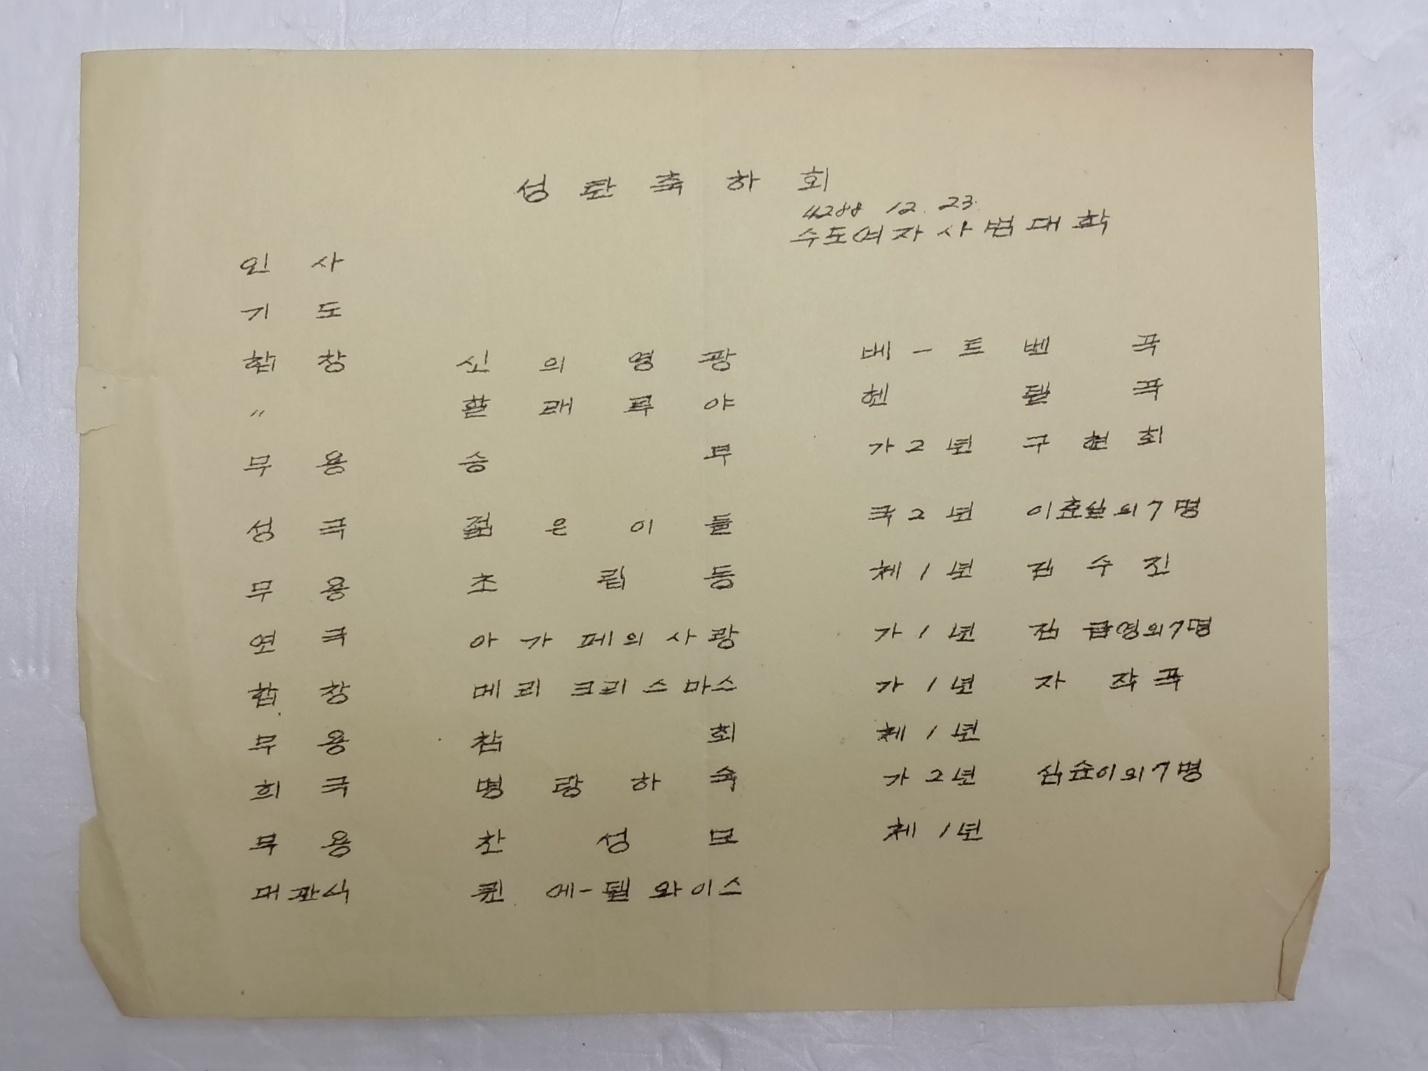 성탄축하회
4288 12. 23.
수도여자사범대학
인사
기도
합창 신의영광 베-트벤 곡
〃 할래루야 헨델 곡
무용 승무 가2년 구현회
성극 젊은이들 국2년 이효실외7명
무용 초립동 체1년 김수진
연극 아가페의사랑 가1년 김금영외7명
합창 메리크리스마스 가1년 자작곡
무용 참회 체1년
희극 명랑하숙 가2년 심순이외7명
무용 찬성모 체1년
대관식 퀸 에-델와이스